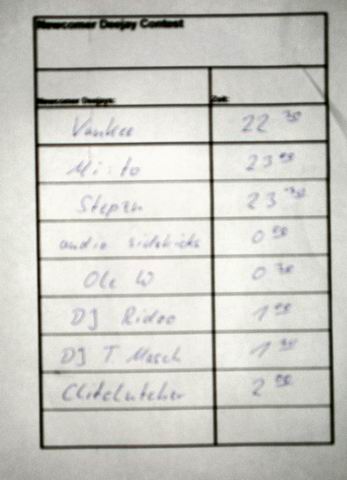 Newcomer Deejay Contest
Newcomer Deejays: Zeit:
Vankee 22 30
Mi:to 23 00
Stepan 23 30
audio sidekicks 0 00
Ole W 0 30
DJ Ridoo 1 00
DJ T. Masch 1 30
2 00